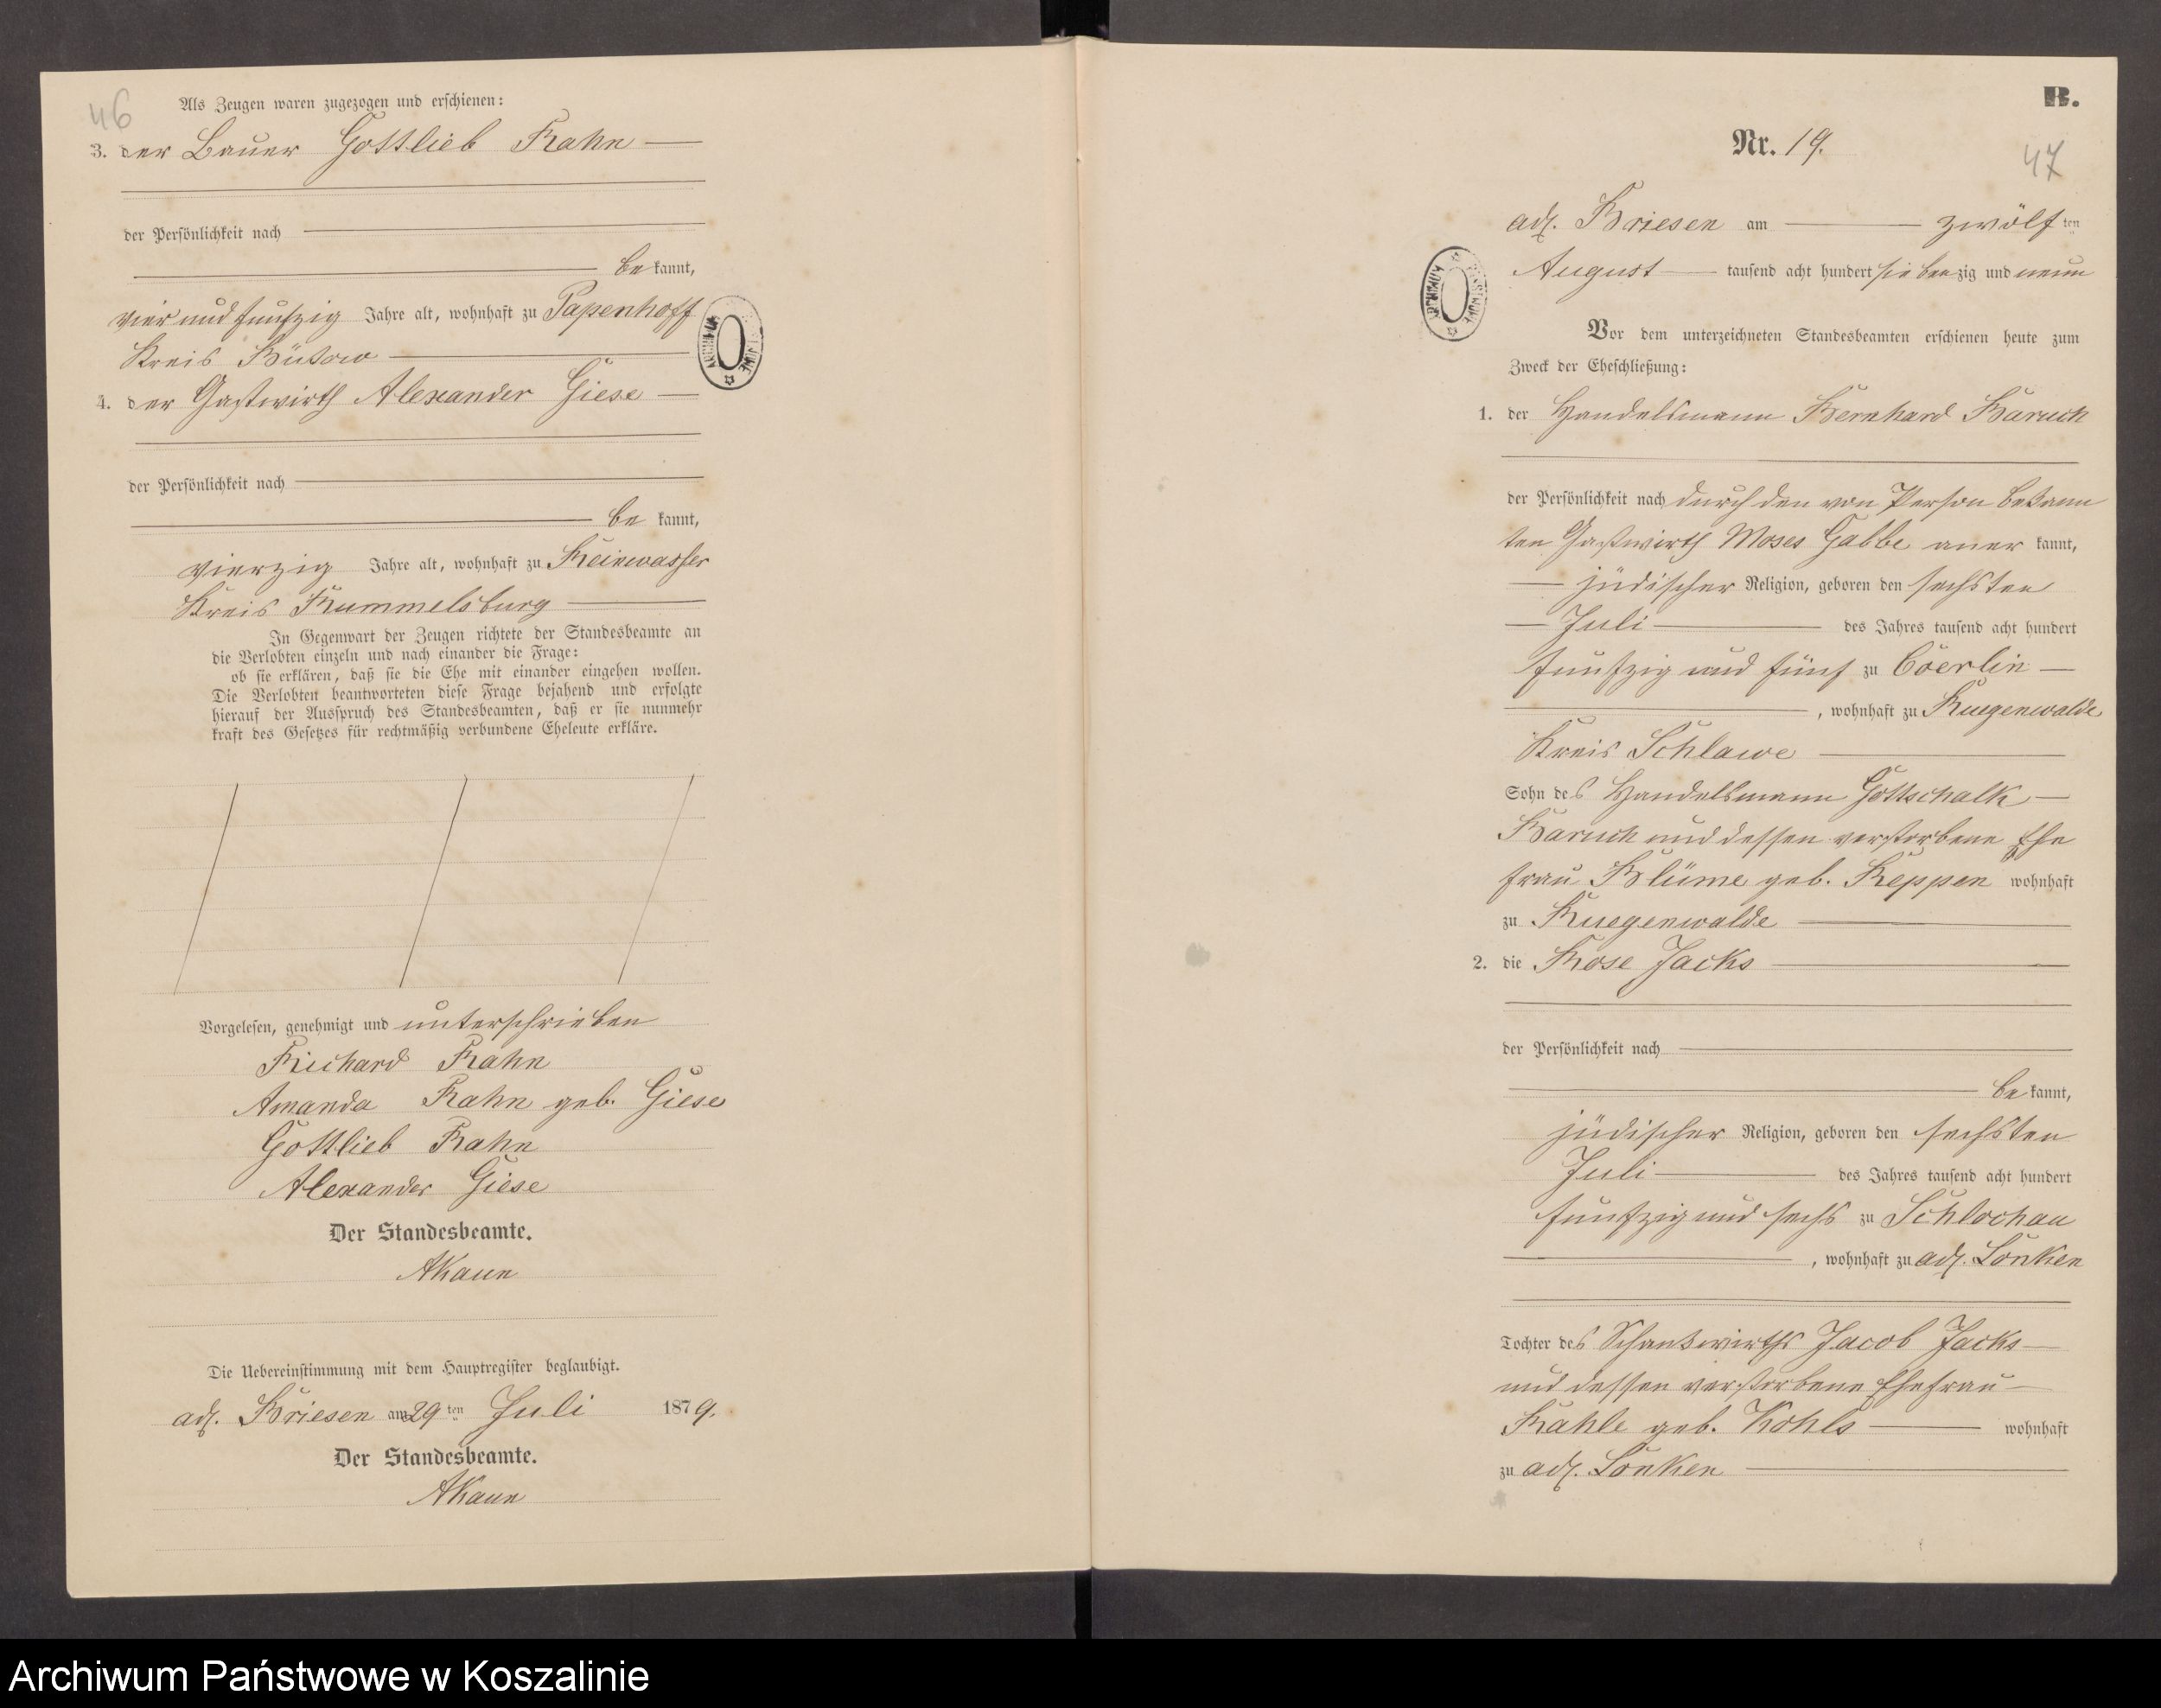 46
Als Zeugen waren zugezogen und erschienen:
3. der Bauer Gottlieb Rahn
der Persönlichkeit nach
be kannt,
vier und funfzig Jahre alt, wohnhaft zu Papenhoff
Kreis Bütow
4. der Gastwirth Alexander Giese
der Persönlichkeit nach
be kannt,
vierzig Jahre alt, wohnhaft zu Reinwasser
Kreis Rummelsburg
In Gegenwart der Zeugen richtete der Standesbeamte an
die Verlobten einzeln und nach einander die Frage:
ob sie erklären, daß sie die Ehe mit einander eingehen wollen.
Die Verlobten beantworteten diese Frage bejahend und erfolgte
hierauf der Ausspruch des Standesbeamten, daß er sie nunmehr
kraft des Gesetzes für rechtmäßig verbundene Eheleute erkläre.
Vorgelesen, genehmigt und unterschrieben
Richard Rahn
Amanda Rahn geb. Giese
Gottlieb Rahn
Alexander Giese
Der Standesbeamte.
AKaun
Die Uebereinstimmung mit dem Hauptregister beglaubigt.
adl. Briesen am 29 ten Juli 1879.
Der Standesbeamte.
AKaun
B.
Nr. 19.
47
adl. Briesen am zwölf ten
August tausend acht hundert siebenzig und neun
Vor dem unterzeichneten Standesbeamten erschienen heute zum
Zweck der Eheschließung:
1. der Handelsmann Bernhard Baruch
der Persönlichkeit nach durch den von Person bekann
ten Gastwirth Moses Gabbe aner kannt,
jüdischer Religion, geboren den sechsten
Juli des Jahres tausend acht hundert
funfzig und fünf zu Coerlin
, wohnhaft zu Ruegenwalde
Kreis Schlawe
Sohn des Handelsmann Gottschalk
Baruch und dessen verstorbene Ehe
frau Blüme geb. Reppen wohnhaft
zu Ruegenwalde
2. die Rose Jacks
der Persönlichkeit nach
be kannt,
jüdischer Religion, geboren den sechsten
Juli des Jahres tausend acht hundert
funfzig und sechs zu Schlochau
, wohnhaft zu adl. Lonken
Tochter des Schankwirths Jacob Jacks
und dessen verstorbene Ehefrau
Rahle geb. Kohls wohnhaft
zu adl. Lonken
Archiwum Państwowe w Koszalinie